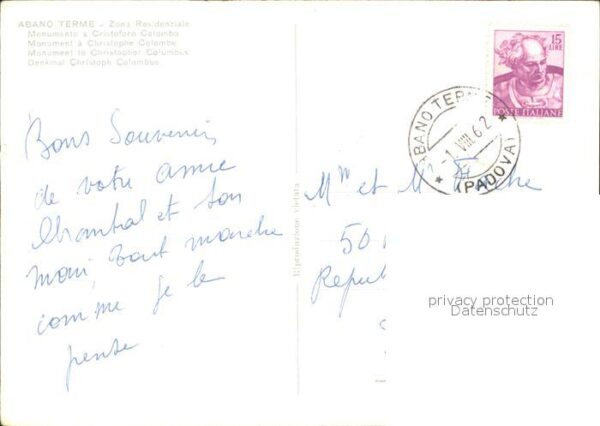 ABANO TERME - Zona Residenziale
Monumento a Cristoforo Colombo
Monument à Christophe Colombe
Monument to Christopher Columbus
Denkmal Christoph Columbus
Bons Souvenirs
de votre amie
Chantal et son
mari, tout marche
comme je le
pense
Riproduzione vietata
15
LIRE
POSTE ITALIANE
ABANO TERME
-1.VIII.62
(PADOVA)
Mm et Mr
50
Repu
privacy protection
Datenschutz